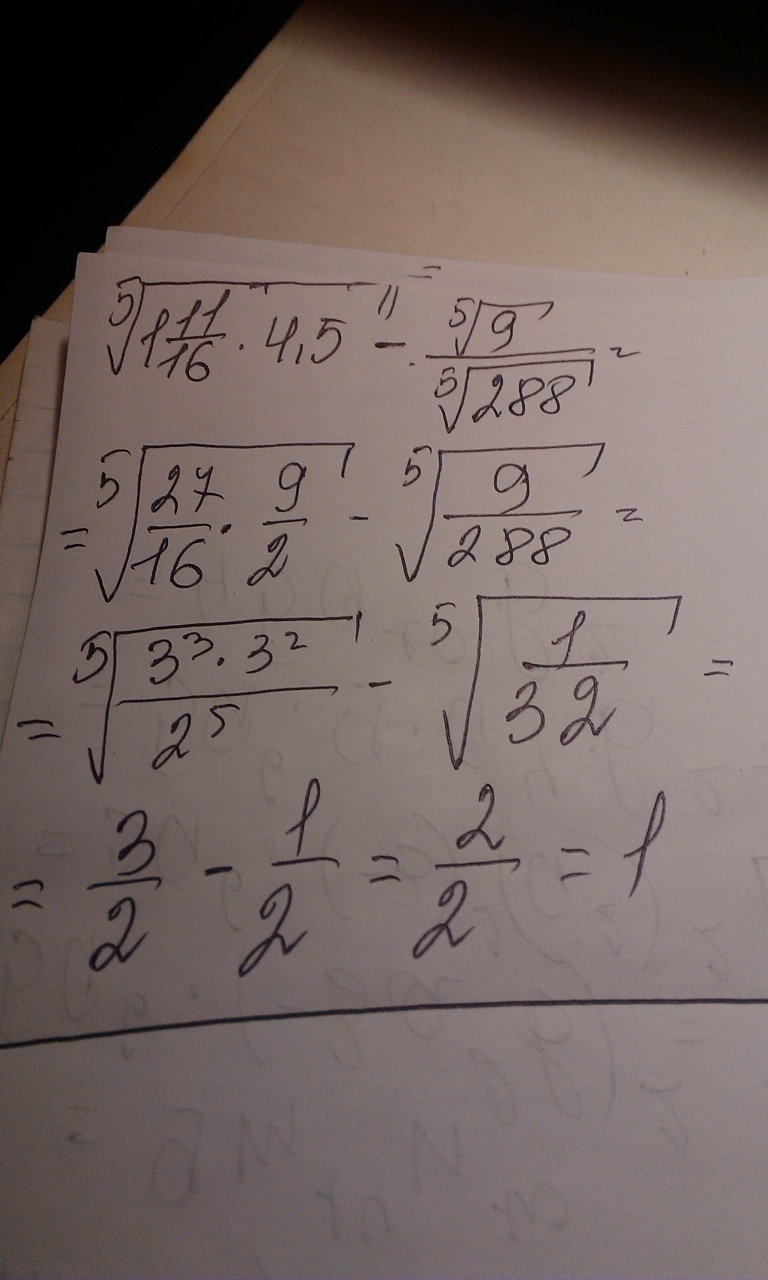 ⁵√(1 11/16 · 4,5) - ⁵√9/⁵√288 =
= ⁵√(27/16 · 9/2) - ⁵√(9/288) =
= ⁵√(3³ · 3²/2⁵) - ⁵√(1/32) =
= 3/2 - 1/2 = 2/2 = 1